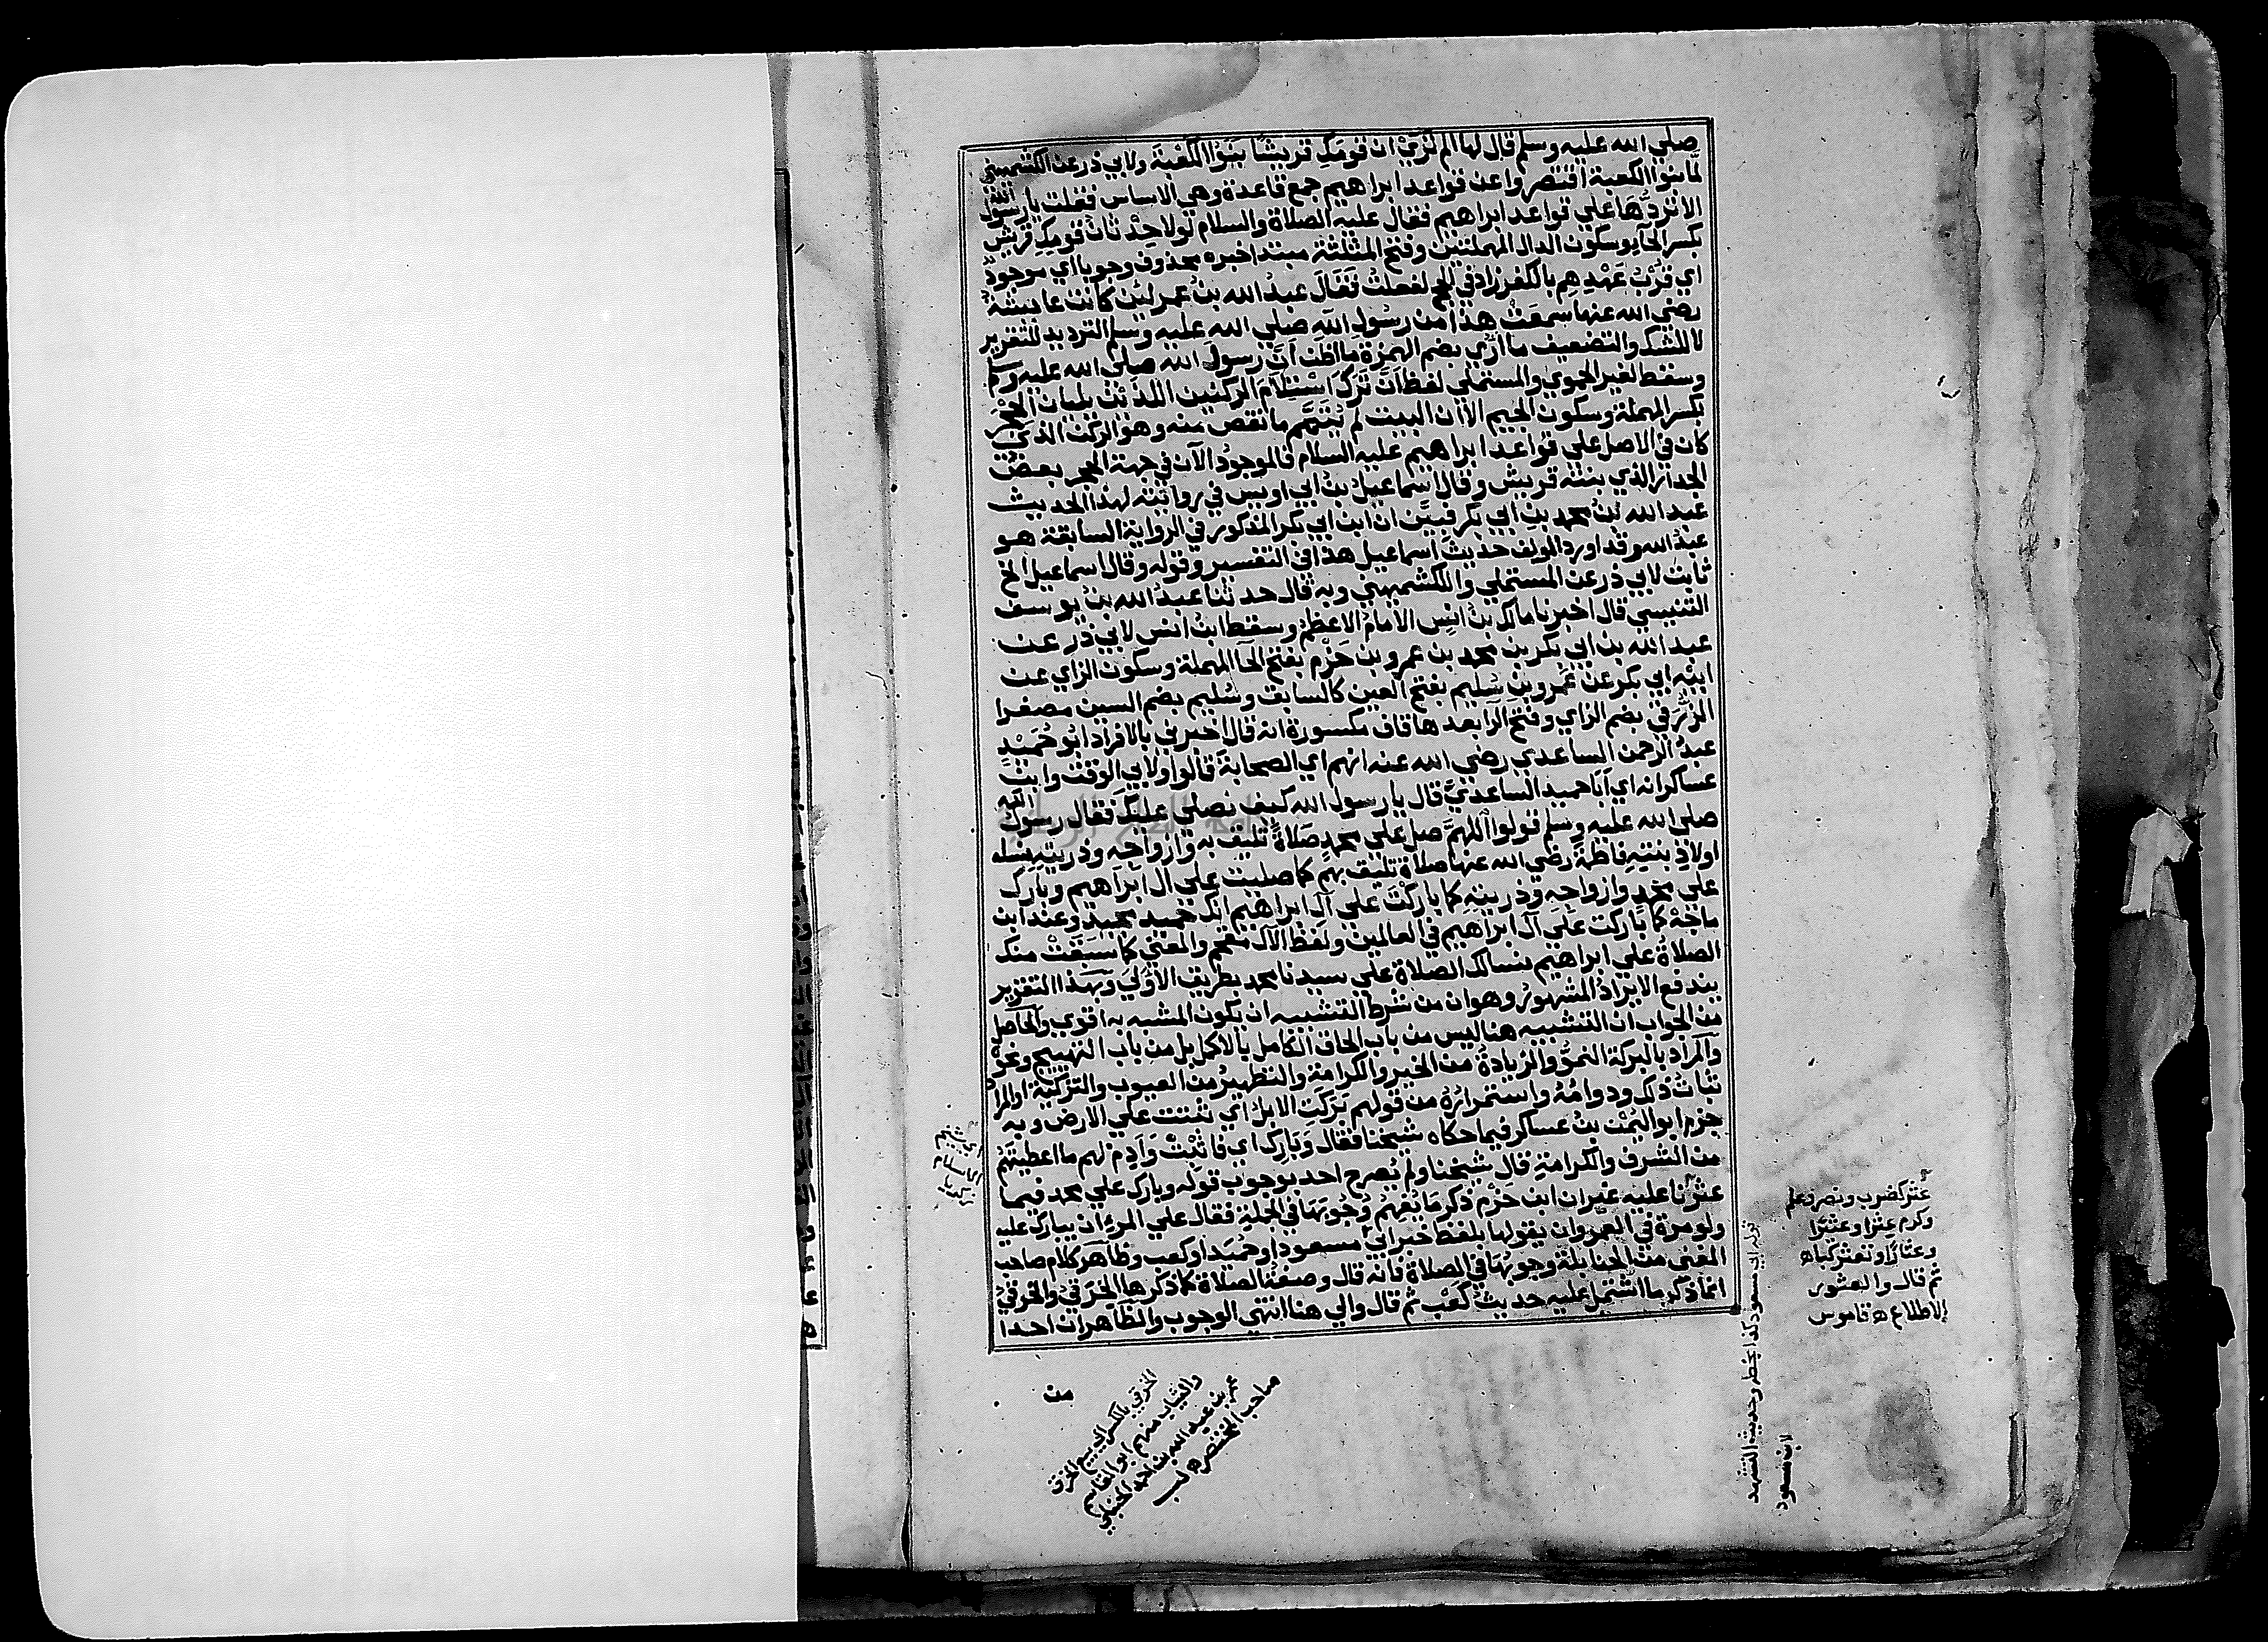 صلي الله عليه وسلم قال لها الم تَرَيْ ان قومَكِ قريشًا بنوُا الكعبةَ ولابي ذر عن الكشميهني
لمّا بنوا الكعبة اقتصروا عن قواعد ابراهيم جمع قاعدة وهي الاساس فقلت يا رسول الله
الا تردُّها علي قواعد ابراهيم فقال عليه الصلاة والسلام لولا حِدْثانُ قومكِ قريش
بكسر الحآء وسكون الدال المهملتين وفتح المثلثة مبتدا خبره محذوف وجوبا اي موجود
اي قُرْبُ عَهْدِهِم بالكفر زاد في الحج لفعلتُ فَقَالَ عبدُ الله بنُ عمر لئن كانت عائشة
رضي الله عنها سمعَتْ هذا من رسُولِ اللهِ صلي الله عليه وسلم الترديد للتقرير
لا للشك والتضعيف ما اُرَي بضم الهمزة ما اظن اَنَّ رسولَ الله صلي الله عليه وسلم
وسقط لغير الحموي والمستملي لفظ اَنّ تَرَكَ اسْتلامَ الركنين اللذَيْن يليان الحِجْر
بكسر المهملة وسكون الجيم الا ان البيت لم يُتَمَّم ما نقص منه وهو الركن الذي
كان في الاصل علي قواعد ابراهيم عليه السلام فالموجودُ الآن في جهة الحجر بعضُ
الجدار الذي بنته قريش وقال اسماعيلُ بنُ ابي اويس في روايته لهذا الحديث
عبد الله بنُ محمد بنِ ابي بكر فبيّن ان ابن ابي بكر المذكور في الرواية السابقة هو
عبدُ الله وقد اورد المولف حديثَ اسماعيل هذا في التفسير وقوله وقال اسماعيل الخ
ثابتٌ لابي ذر عن المستملي والكشميهني وبه قال حدثنا عبدُ الله بنُ يوسف
التنيسي قال اخبرنا مالك بنُ انس الامامُ الاعظمُ وسقط ابنُ انس لابي ذر عن
عبد الله بن ابي بكر بن محمد بن عمرو بن حَزْم بفتح الحا المهملة وسكون الزاي عن
ابيْهِ ابي بكر عن عَمْرو بن سُليم بفتح العين كالسابق وسُليم بضم السين مصغرا
الزُّرَقيّ بضم الزاي وفتح الرا بعدها قاف مكسورة انه قال اخبرني بالافراد ابو حُمَيْدٍ
عبدُ الرحمن الساعدي رضي الله عنه انهم اي الصحابةَ قالوا ولابي الوقت وابن
عساكر انه اي ابا حميد الساعديَّ قال يا رسولَ الله كيف نصلي عليك فقال رسولُ الله
صلي الله عليه وسلم قولوا اللهمّ صل علي محمدٍ صلاةً تليق به وازواجه وذريته نسله
اولادِ بنتِهِ فاطمةَ رضي الله عنها صلاة تليق بهم كما صليت علي ال ابراهيم وبارك
علي محمدٍ وازواجه وذريتِهِ كما باركْتَ علي آلِ ابراهيم انك حميد مجيد وعند ابن
ماجَهْ كما باركت علي آل ابراهيم في العالمين ولفظ الآل مقحم والمعني كما سَبَقَتْ منك
الصلاةُ علي ابراهيم نسالك الصلاة علي سيدنا محمد بطريق الأَوْلَي وبهذا التقرير
يندفع الايرادُ المشهورُ وهو ان من شرط التشبيه ان يكون المشبه به اقوي والحاصل
من الجواب ان التشبيه هنا ليس من باب الحاق الكامل بالاكمل بل من باب التهييج ونحوِهِ
والمراد بالبركة النموُّ والزيادةُ من الخير والكرامة والتطهيرُ من العيوب والتزكيةُ او المرا
ثباتُ ذلك ودوامُهُ واستمرارُهُ من قولهم بَرَكَتِ الابلُ اي ثبتت علي الارض وبه
جزم ابو اليُمْنِ بنُ عساكر فيما حكاه شيخنا فقال وَبَارِك اي فَاَثْبِتْ وَاَدِمْ لهم ما اعطيتَهُم
من الشرف والكرامةِ قال شيخنا ولم يُصرح احد بوجوب قوله وبارك علي محمد فيما
عثرْنا عليه غيرَ ان ابن حَزْم ذكر مَا يُفهِمُ وُجُوبَهَا في الجملةِ فقال علي المرءِ ان يبارك عليه
ولو مرة في العمر وان يقولها بلفظ خبر ابي مسعود او حُمَيْد او كعب وظاهر كلام صاحب
المغني من الحنابلة وجوبُهَا في الصلاة فانه قال وصفةُ الصلاة كما ذكرها الخِرَقيُّ والخرقيُّ
انما ذكر ما اشتمل عليه حديثُ كعْب ثم قال والي هنا انتهي الوجوب والظاهر ان احدا
من
عثر كضرب ونصر وعلم
وكرم عثرا وعثيرا
وعثارا وتعثر كبا ه
ثم قال والعثور
الاطلاع ه قاموس
قوله ابي مسعود كذا بخطه وحديث التشهد
لابن مسعود
الخرقي بالكسر الي بيع الخرق
والثياب منهم ابو القاسم
عمر بن عبد الله بن احمد الحنبلي
صاحب المختصر ه لب